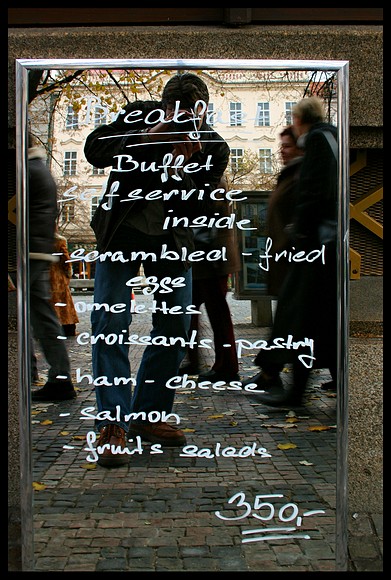 Breakfast
Buffet
self service
inside
- scrambled - fried
eggs
- omelettes
- croissants - pastry
- ham - cheese
- salmon
- fruits salads
350,-